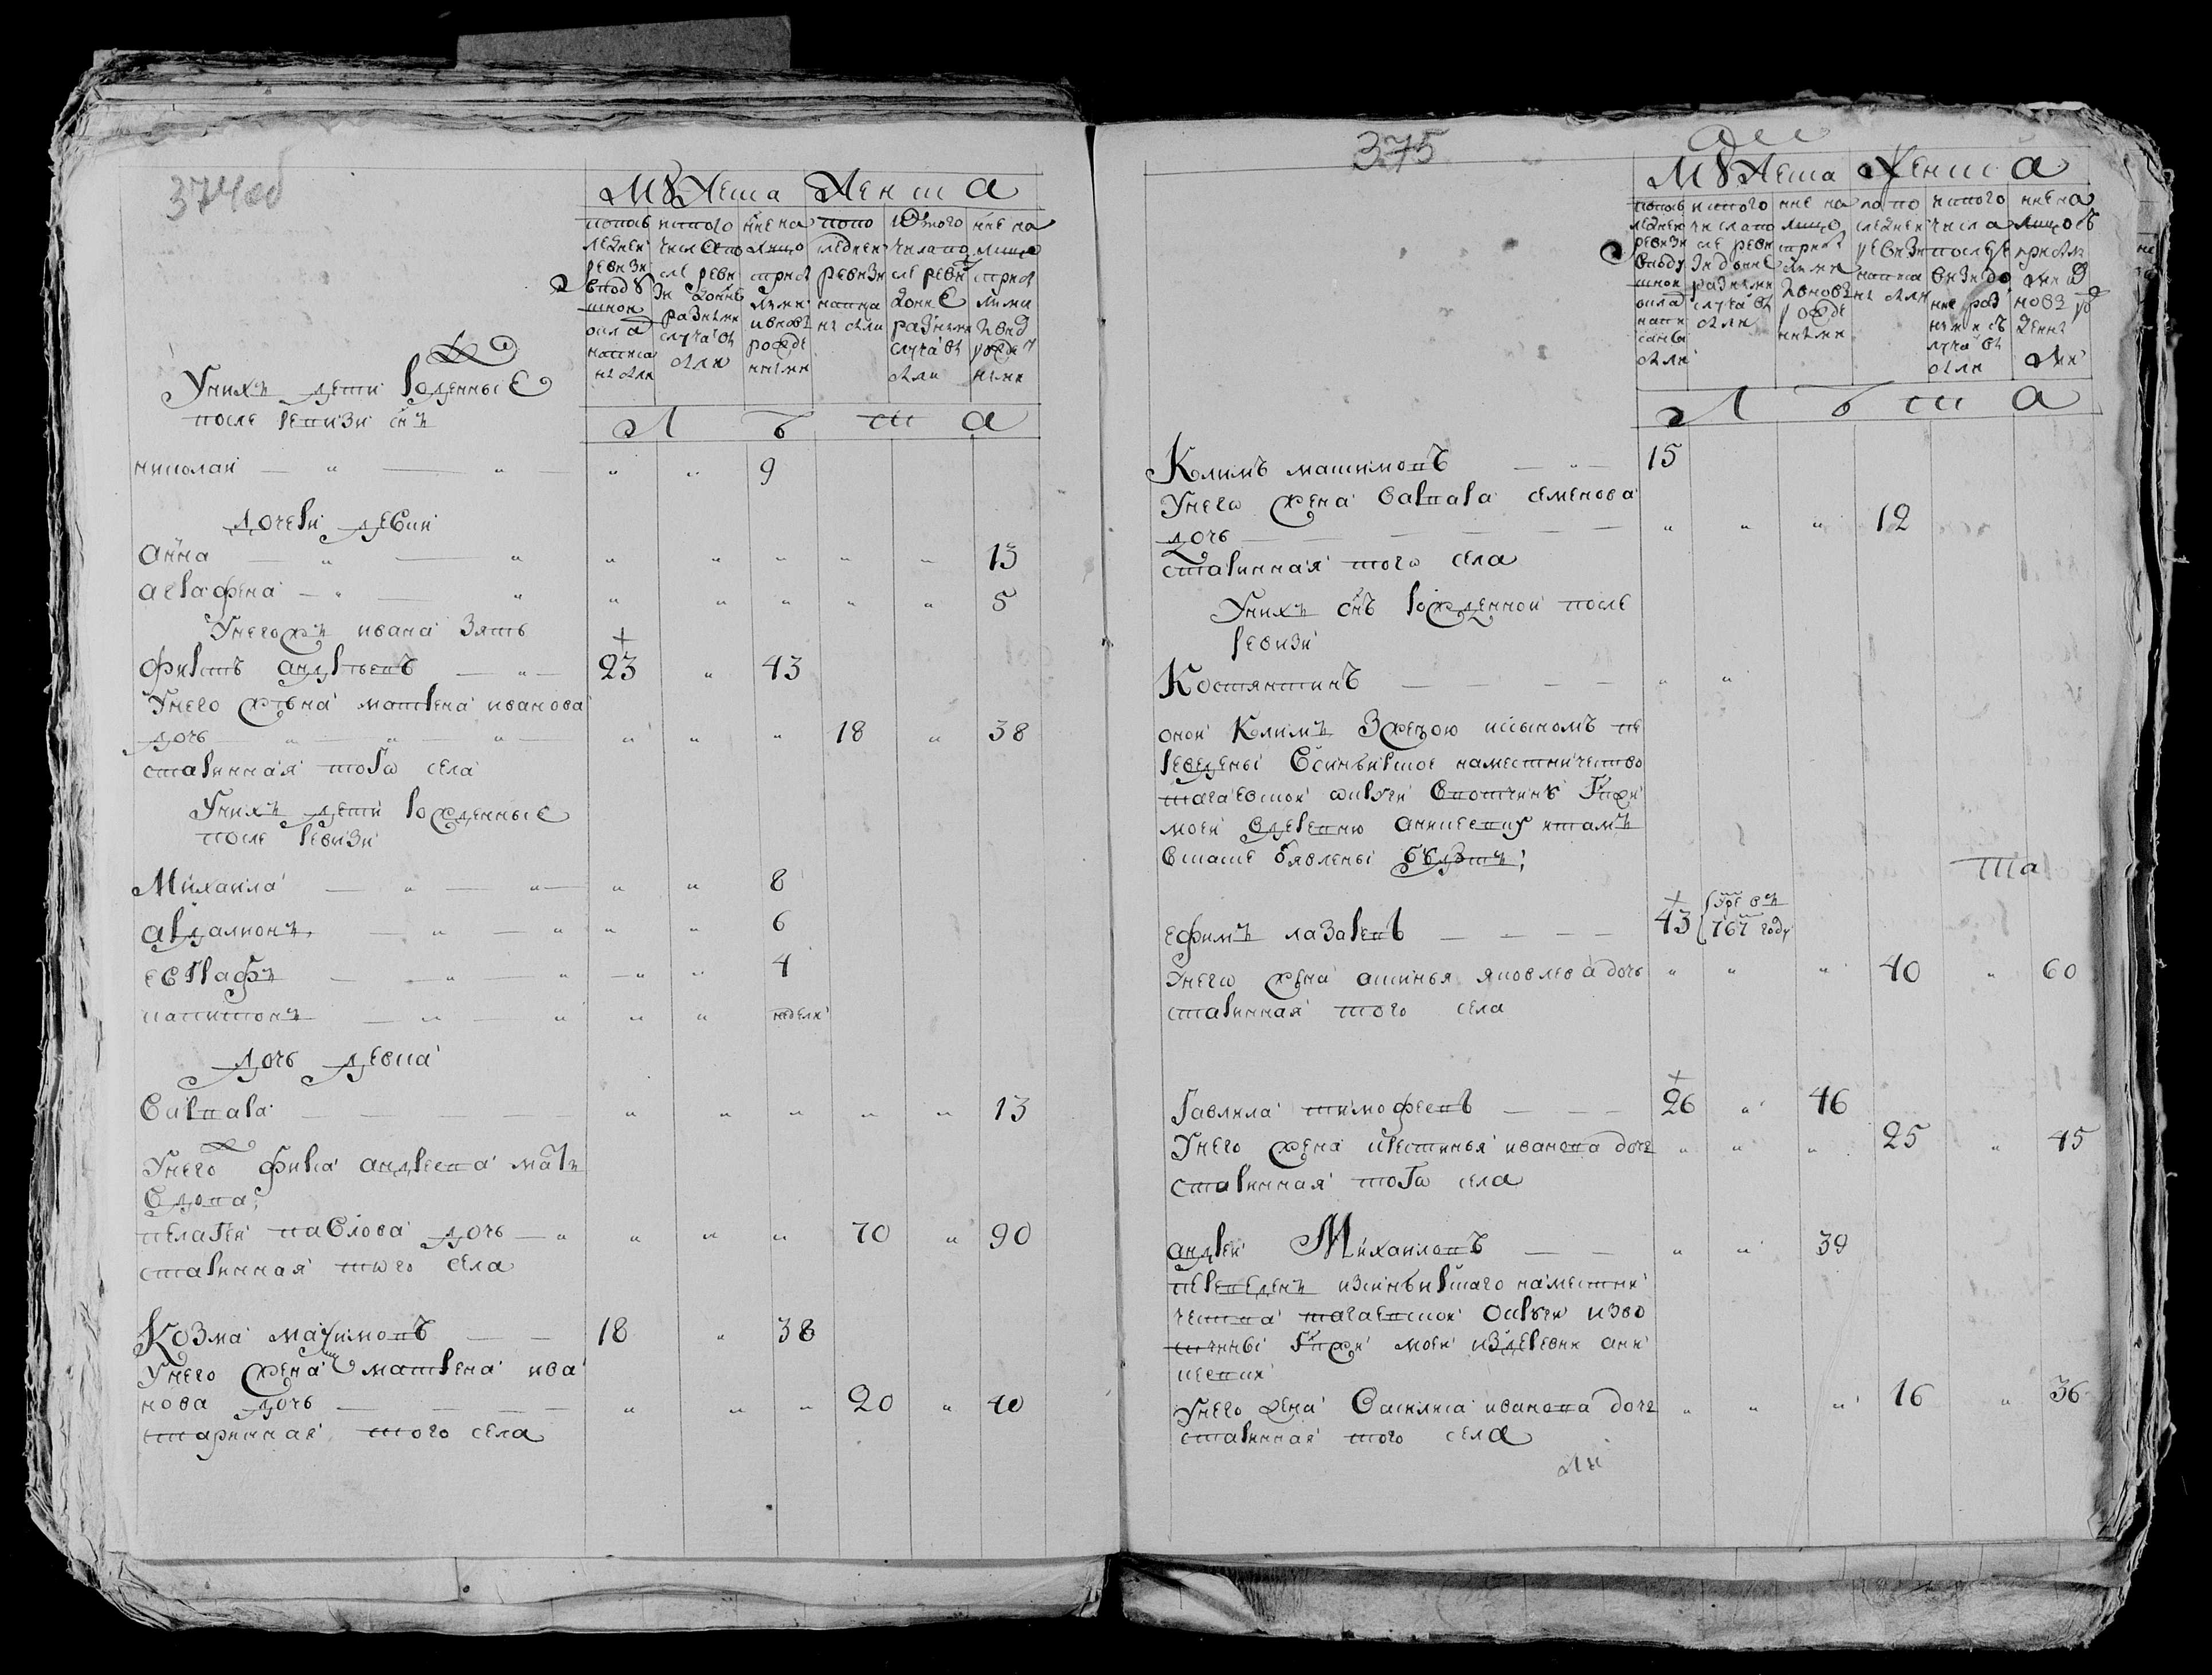 374об
Мужеска Женска
попос
ледней
ревизи
в подуш
ной
оклад
написа
ны были
ис того
числа по
сле реви
зи до нне
разными
случаи вы
были
нне на
лицо
с при
лыми
и вновь
рожде
нными
по по
следней
ревизи
написа
ны были
ис того
числа по
сле реви
до нне
разными
случаи вы
были
нне на
лицо
с при
лыми
и внов
рожде
нными
Л ѣ т а
У нихъ дети рожденные
после ревизи снъ
николай " " " " 9
дочери девки
Анна " " " " " " " 13
аграфена " " " " " " " 5
У негожъ ивана зять
Фирстъ андреевъ " 23 " 43
У него жена матрена иванова
дочь " " " " " " 18 " 38
старинная того села
У нихъ дети рожденные
после ревизи
Михаила " " " " 8
авдамонъ " " " " 6
евграфъ " " " " 4
капитонъ " " " " недели
дочь девка
Варвара " " " " " 13
У него фирса андреева мать
вдова
пелагея павлова дочь " " " " 70 " 90
старинная того села
Козма максимовъ 18 " 38
У него жена матрена ива
нова дочь " " " 20 " 40
старинная того села
375
Мужеска Женска
попос
ледней
ревизи
в поду
шной
оклад
напи
саны
были
ис того
числа по
сле реви
зи до нне
разными
случаи вы
были
нне на
лицо
с при
лыми
и вновь
рожде
нными
по по
следней
ревизи
написа
ны были
ис того
числа
после ре
визи до
нне раз
ными
случаи вы
были
нне на
лицо съ
прилы
ми и
новь ро
жденны
ми
Л ѣ т а
Климъ максимовъ " 15
У него жена варвара семенова
дочь " " " 12
старинная того села
У нихъ снъ рожденной после
ревизи
Костянтинъ " "
оной Климъ з женою и сыномъ пе
реведены в синбирское наместничество
тагаевской округи в вотчину гпжи
моей в деревню аникеевку и тамъ
в скаске объявлены будутъ
Ефимъ лазаревъ 43 умре въ
767 году
У него жена аксинья яковлева дочь " " " 40 " 60
старинная того села
Гаврила тимофеевъ 26 " 46
У него жена устинья иванова дочь " " " 25 " 45
старинная того села
андрей Михаиловъ " " 39
переведенъ из синбирскаго наместни
чества тагаевской округи из во
тчины гпжи моей из деревни ани
кеевки
У него жена Василиса иванова дочь " " " 16 " 36
старинная того села